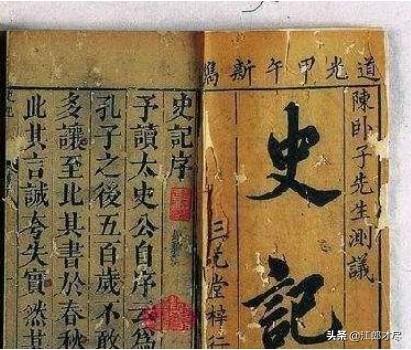 道光甲午新鐫
陳卧子先生測議
史記
三元堂梓行
史記序
予讀太史公自序云為
孔子之後五百歲不敢
多讓至比其書於春秋
此其言誠夸失實然其
头条@江郎才尽